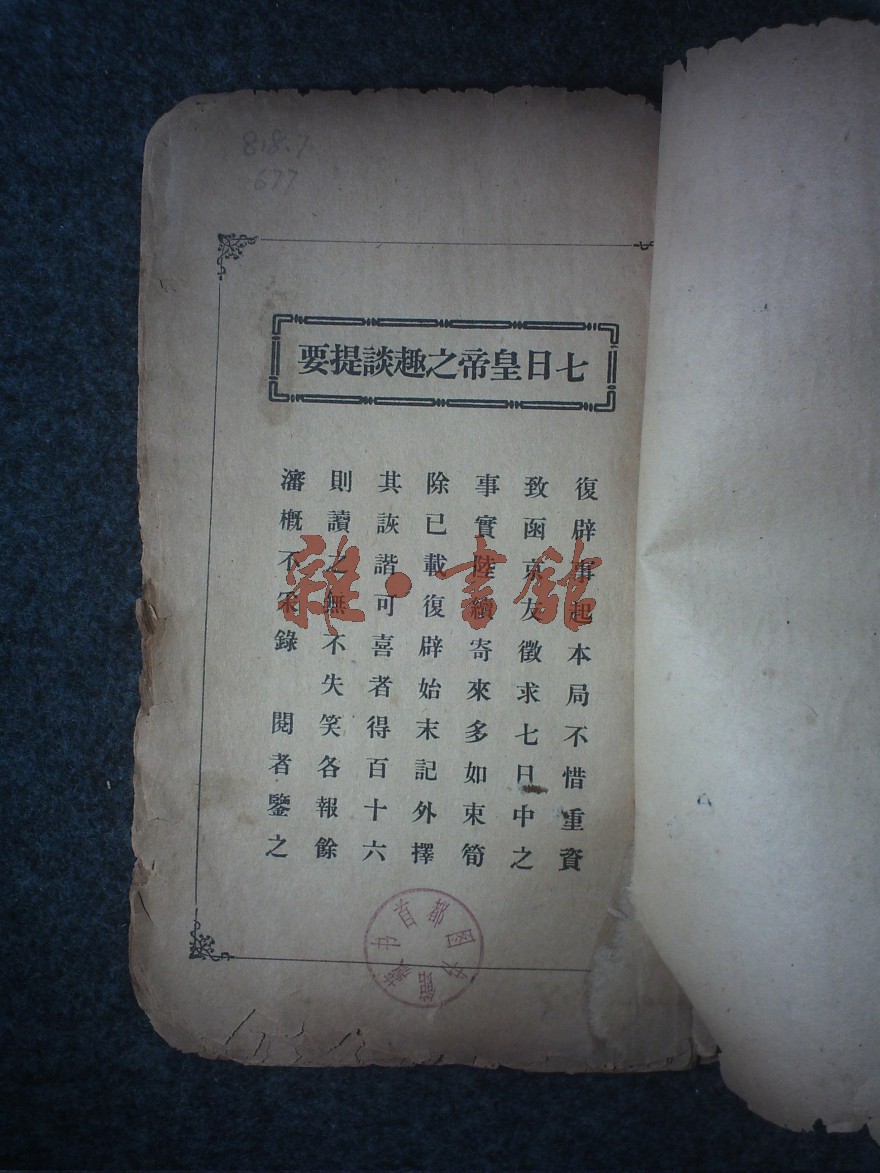 818.7
677
七日皇帝之趣談提要
復辟事起本局不惜重資
致函京友徵求七日中之
事實陸續寄來多如束筍
除已載復辟始末記外擇
其詼諧可喜者得百十六
則讀之無不失笑各報餘
瀋概不采錄 閱者鑒之
雜·書館
首都圖書館藏書